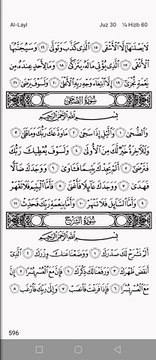 Al-Layl Juz 30 ¼ Hizb 60
لَا يَصْلَىٰهَآ إِلَّا ٱلْأَشْقَى ١٥ ٱلَّذِى كَذَّبَ وَتَوَلَّىٰ ١٦ وَسَيُجَنَّبُهَا
ٱلْأَتْقَى ١٧ ٱلَّذِى يُؤْتِى مَالَهُۥ يَتَزَكَّىٰ ١٨ وَمَا لِأَحَدٍ عِندَهُۥ مِن
نِّعْمَةٍ تُجْزَىٰٓ ١٩ إِلَّا ٱبْتِغَآءَ وَجْهِ رَبِّهِ ٱلْأَعْلَىٰ ٢٠ وَلَسَوْفَ يَرْضَىٰ ٢١
سُورَةُ الضُّحَىٰ
بِسْمِ ٱللَّهِ ٱلرَّحْمَٰنِ ٱلرَّحِيمِ
وَٱلضُّحَىٰ ١ وَٱلَّيْلِ إِذَا سَجَىٰ ٢ مَا وَدَّعَكَ رَبُّكَ وَمَا قَلَىٰ ٣
وَلَلْءَاخِرَةُ خَيْرٌ لَّكَ مِنَ ٱلْأُولَىٰ ٤ وَلَسَوْفَ يُعْطِيكَ رَبُّكَ
فَتَرْضَىٰٓ ٥ أَلَمْ يَجِدْكَ يَتِيمًا فَـَٔاوَىٰ ٦ وَوَجَدَكَ ضَآلًّا
فَهَدَىٰ ٧ وَوَجَدَكَ عَآئِلًا فَأَغْنَىٰ ٨ فَأَمَّا ٱلْيَتِيمَ فَلَا تَقْهَرْ
٩ وَأَمَّا ٱلسَّآئِلَ فَلَا تَنْهَرْ ١٠ وَأَمَّا بِنِعْمَةِ رَبِّكَ فَحَدِّثْ ١١
سُورَةُ الشَّرْحِ
بِسْمِ ٱللَّهِ ٱلرَّحْمَٰنِ ٱلرَّحِيمِ
أَلَمْ نَشْرَحْ لَكَ صَدْرَكَ ١ وَوَضَعْنَا عَنكَ وِزْرَكَ ٢ ٱلَّذِىٓ
أَنقَضَ ظَهْرَكَ ٣ وَرَفَعْنَا لَكَ ذِكْرَكَ ٤ فَإِنَّ مَعَ ٱلْعُسْرِ يُسْرًا ٥ إِنَّ
مَعَ ٱلْعُسْرِ يُسْرًا ٦ فَإِذَا فَرَغْتَ فَٱنصَبْ ٧ وَإِلَىٰ رَبِّكَ فَٱرْغَب ٨
596